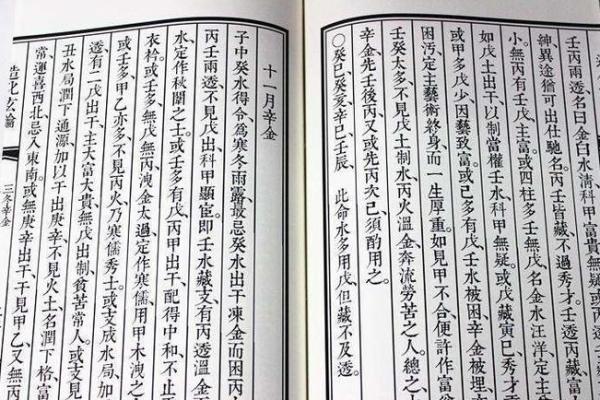 壬丙兩透、名曰金白水清、科甲富貴無疑、或
紳、異途猶可出仕馳名、丙壬皆藏、不過秀才、壬透丙藏、富
小、無丙有壬戊、主富、或四柱多壬無戊、名金水汪洋、定主
如戊土出干、以制當權壬水、科甲無疑、或戊藏寅巳、秀才
或甲多戊少、因藝致富、或已多有戊、壬水被困、辛金被埋、
困污、定主藝術終身、而一生厚重、如見甲不合、便許作富
壬癸太多、不見戊土制水、丙火溫金、奔流勞苦之人、總之
辛金、先壬後丙、又或先丙次已、須酌用之。
○癸巳、癸亥、辛巳、壬辰、 此命水多用戊、但藏不及透。
十一月辛金
子中癸水得令、為寒冬雨露、最忌癸水出干凍金、而困丙
丙壬兩透、不見戊出、科甲顯宦、即壬水藏支、有丙透溫金
水、定作秋闈之士、或壬多有戊、丙甲出干、配得中和、不止
衣衿、或壬多、無戊無丙、洩金太過、定作寒儒、用甲木洩之
或壬多、甲乙亦多、不見丙火、乃寒儒秀士、或支成水局、加
透、有二戊出干、主大富大貴、無戊出制、貧苦常人、或支見
丑水局、潤下通源、加以干出庚辛、不見火土、名潤下格、富
常、運喜西北、忌入東南、或無庚辛出干、干見甲乙、又無丙
造化玄鑰
三冬辛金